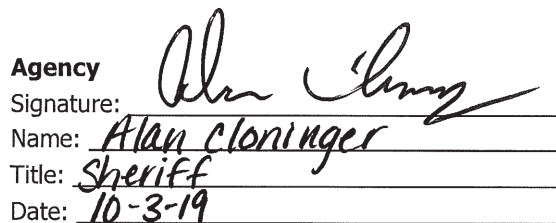 Agency
Signature: Alan Cloninger
Name: Alan Cloninger
Title: Sheriff
Date: 10-3-19